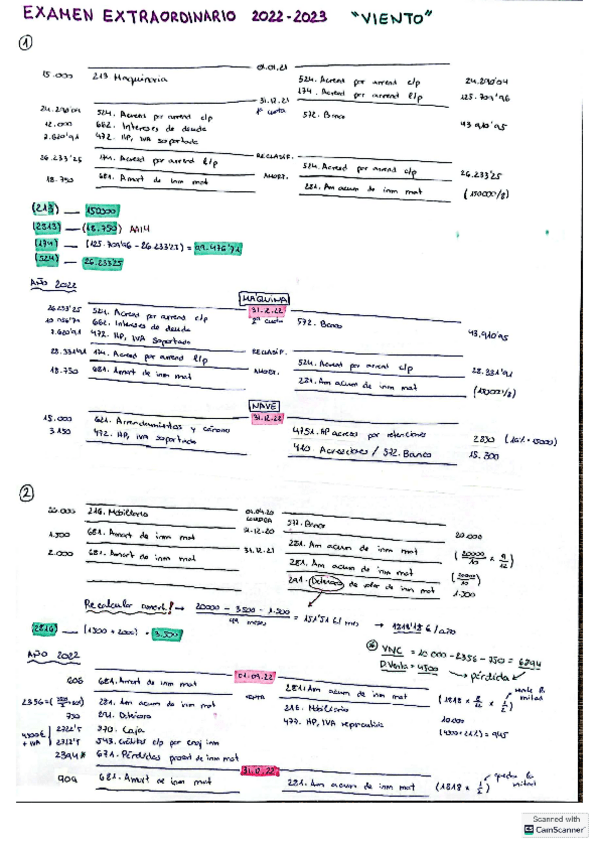 EXAMEN EXTRAORDINARIO 2022-2023 "VIENTO"
1
01.01.21
15.000 213 Maquinaria
524. Acreed por arrend c/p 24.290'04
174. Acreed por arrend l/p 125.709'96
31.12.21
1ª cuota
24.290'04 524. Acreed por arrend c/p
12.000 662. Intereses de deuda
7.620'91 472. HP, IVA soportado
572. Banco 43.910'95
RECLASIF.
26.233'25 174. Acreed por arrend l/p
524. Acreed por arrend c/p 26.233'25
AMORT.
18.750 681. Amort de inm mat
281. Am acum de inm mat (150000/8)
(213) — 150000
(2813) — (18.750) AA14
(174) — (125.709'96 - 26.233'25) = 99.476'71
(524) — 26.233'25
AÑO 2022
MÁQUINA
31.12.22
2ª cuota
26233'25 524. Acreed por arrend c/p
662. Intereses de deuda
7.620'91 472. HP, IVA soportado
572. Banco 43.910'95
RECLASIF.
28.331'91 174. Acreed por arrend l/p
524. Acreed por arrend c/p 28.331'91
AMORT.
18.750 681. Amort de inm mat
281. Am acum de inm mat (150000/8)
NAVE
31.12.22
15.000 621. Arrendamientos y cánones
3.150 472. HP, IVA soportado
4751. HP acreed por retenciones 2850 (19% · 15000)
410 Acreedores / 572. Banco 15.300
2
01.04.20
COMPRA
20.000 216. Mobiliario
572. Banco 20.000
31.12.20
1.500 681. Amort de inm mat
281. Am acum de inm mat (20000/10 x 9/12)
31.12.21
2.000 681. Amort de inm mat
281. Am acum de inm mat (20000/10)
291. Deterioro de valor de inm mat 1.500
Recalcular amort! → 20000 - 3.500 - 1.500 / 99 meses = 151'51 €/mes → 1818'18 €/año
(2816) — (1500 + 2000) = 3.500
VNC = 10.000 - 2356 - 750 = 6894
P.Venta = 4500 → pérdida
AÑO 2022
01.09.22
606 681. Amort de inm mat
281. Am acum de inm mat (1818 x 8/12 x 1/2) vende la mitad
VENTA
2356 = 281. Am acum de inm mat
750 291. Deterioro
4500€ + IVA
2722'5 570. Caja
2722'5 543. Créditos c/p por enaj inm
2394 671. Pérdidas procedt de inm mat
216. Mobiliario 10.000
477. HP, IVA repercutido (4500 x 21%) = 945
31.12.22
909 681. Amort de inm mat
281. Am acum de inm mat (1818 x 1/2) queda la mitad
Scanned with
CS CamScanner